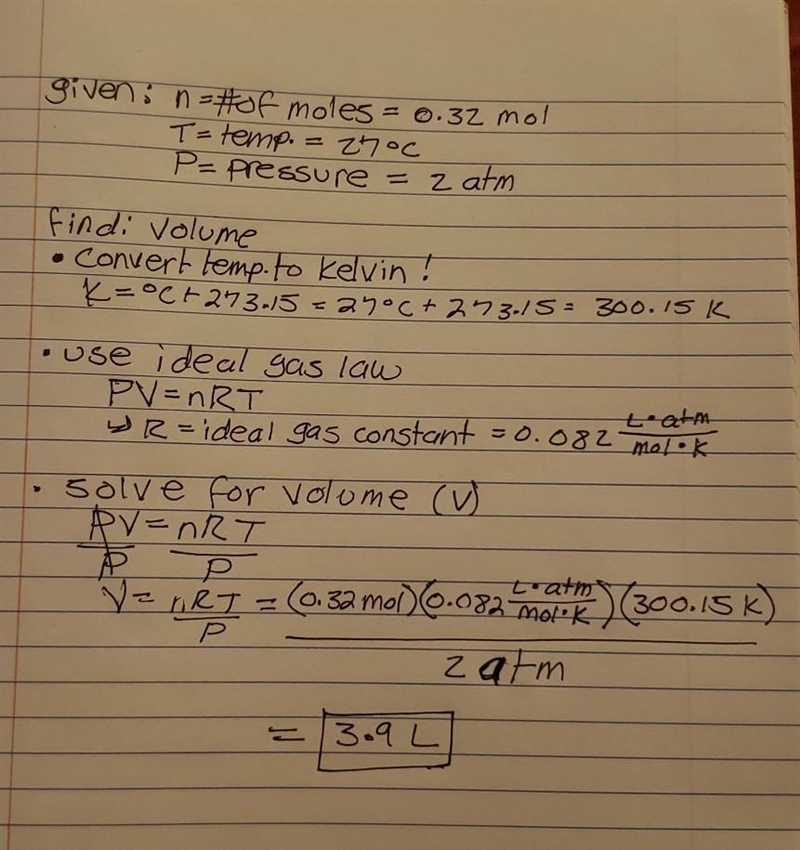 given: n = # of moles = 0.32 mol
T = temp. = 27°C
P = pressure = 2 atm
find: volume
• convert temp. to kelvin!
K = °C + 273.15 = 27°C + 273.15 = 300.15 K
• use ideal gas law
PV = nRT
↳ R = ideal gas constant = 0.082 L•atm/mol•K
• solve for volume (V)
PV/P = nRT/P
V = nRT/P = (0.32 mol)(0.082 L•atm/mol•K)(300.15 K)
2 atm
= 3.9 L